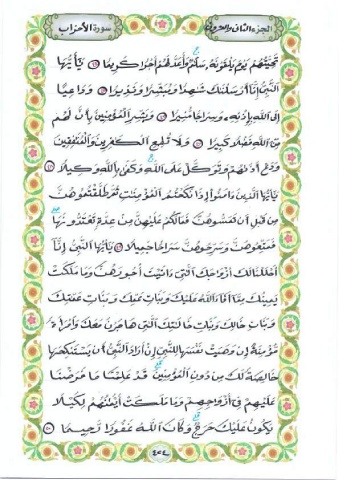 الجزء الثاني والعشرون سورة الأحزاب
تَحِيَّتُهُمْ يَوْمَ يَلْقَوْنَهُۥ سَلَٰمٌ وَأَعَدَّ لَهُمْ أَجْرًا كَرِيمًا ٤٤ يَٰٓأَيُّهَا
ٱلنَّبِىُّ إِنَّآ أَرْسَلْنَٰكَ شَٰهِدًا وَمُبَشِّرًا وَنَذِيرًا ٤٥ وَدَاعِيًا
إِلَى ٱللَّهِ بِإِذْنِهِۦ وَسِرَاجًا مُّنِيرًا ٤٦ وَبَشِّرِ ٱلْمُؤْمِنِينَ بِأَنَّ لَهُم
مِّنَ ٱللَّهِ فَضْلًا كَبِيرًا ٤٧ وَلَا تُطِعِ ٱلْكَٰفِرِينَ وَٱلْمُنَٰفِقِينَ
وَدَعْ أَذَىٰهُمْ وَتَوَكَّلْ عَلَى ٱللَّهِ وَكَفَىٰ بِٱللَّهِ وَكِيلًا ٤٨
يَٰٓأَيُّهَا ٱلَّذِينَ ءَامَنُوٓا۟ إِذَا نَكَحْتُمُ ٱلْمُؤْمِنَٰتِ ثُمَّ طَلَّقْتُمُوهُنَّ
مِن قَبْلِ أَن تَمَسُّوهُنَّ فَمَا لَكُمْ عَلَيْهِنَّ مِنْ عِدَّةٍ تَعْتَدُّونَهَا
فَمَتِّعُوهُنَّ وَسَرِّحُوهُنَّ سَرَاحًا جَمِيلًا ٤٩ يَٰٓأَيُّهَا ٱلنَّبِىُّ إِنَّآ
أَحْلَلْنَا لَكَ أَزْوَٰجَكَ ٱلَّٰتِىٓ ءَاتَيْتَ أُجُورَهُنَّ وَمَا مَلَكَتْ
يَمِينُكَ مِمَّآ أَفَآءَ ٱللَّهُ عَلَيْكَ وَبَنَاتِ عَمِّكَ وَبَنَاتِ عَمَّٰتِكَ
وَبَنَاتِ خَالِكَ وَبَنَاتِ خَٰلَٰتِكَ ٱلَّٰتِى هَاجَرْنَ مَعَكَ وَٱمْرَأَةً
مُّؤْمِنَةً إِن وَهَبَتْ نَفْسَهَا لِلنَّبِىِّ إِنْ أَرَادَ ٱلنَّبِىُّ أَن يَسْتَنكِحَهَا
خَالِصَةً لَّكَ مِن دُونِ ٱلْمُؤْمِنِينَ قَدْ عَلِمْنَا مَا فَرَضْنَا
عَلَيْهِمْ فِىٓ أَزْوَٰجِهِمْ وَمَا مَلَكَتْ أَيْمَٰنُهُمْ لِكَيْلَا
يَكُونَ عَلَيْكَ حَرَجٌ وَكَانَ ٱللَّهُ غَفُورًا رَّحِيمًا ٥٠
٤٢٤